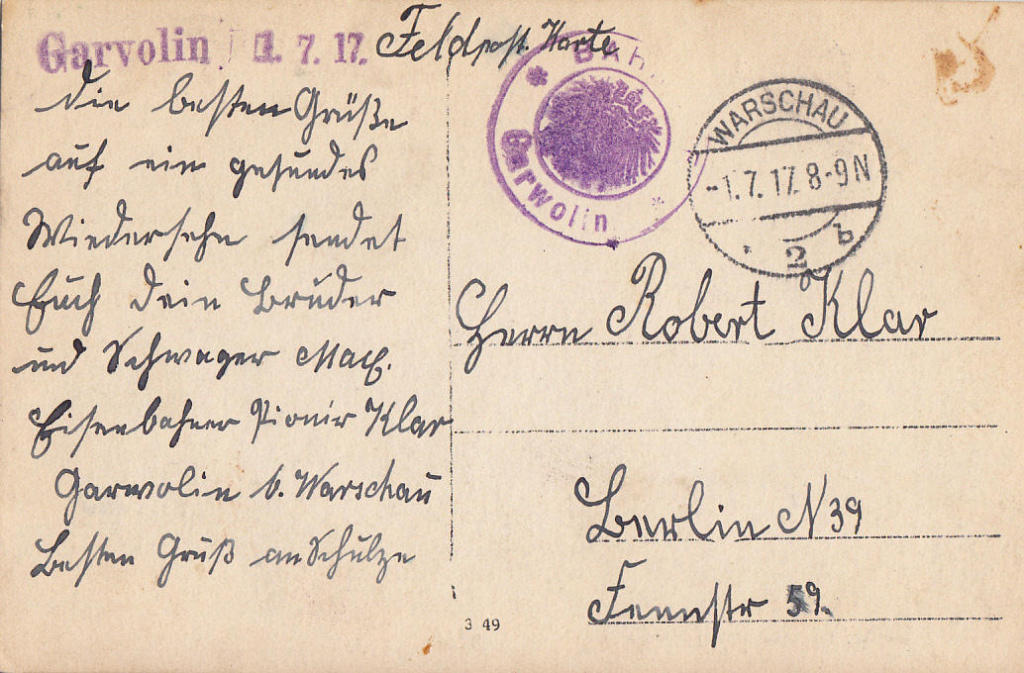 Garvolin 1. 7. 17.
Feldpost. Karte
BAH
Garwolin
WARSCHAU
-1.7.17. 8-9N
2 b
Die besten Grüße
auf ein gesundes
Wiedersehn sendet
Euch dein Bruder
und Schwager Max.
Eisenbahner Pionir Klar
Garwolin b. Warschau
Besten Gruß an Schulze
Herrn Robert Klar
Berlin N 39
Fennstr 59.
3 49